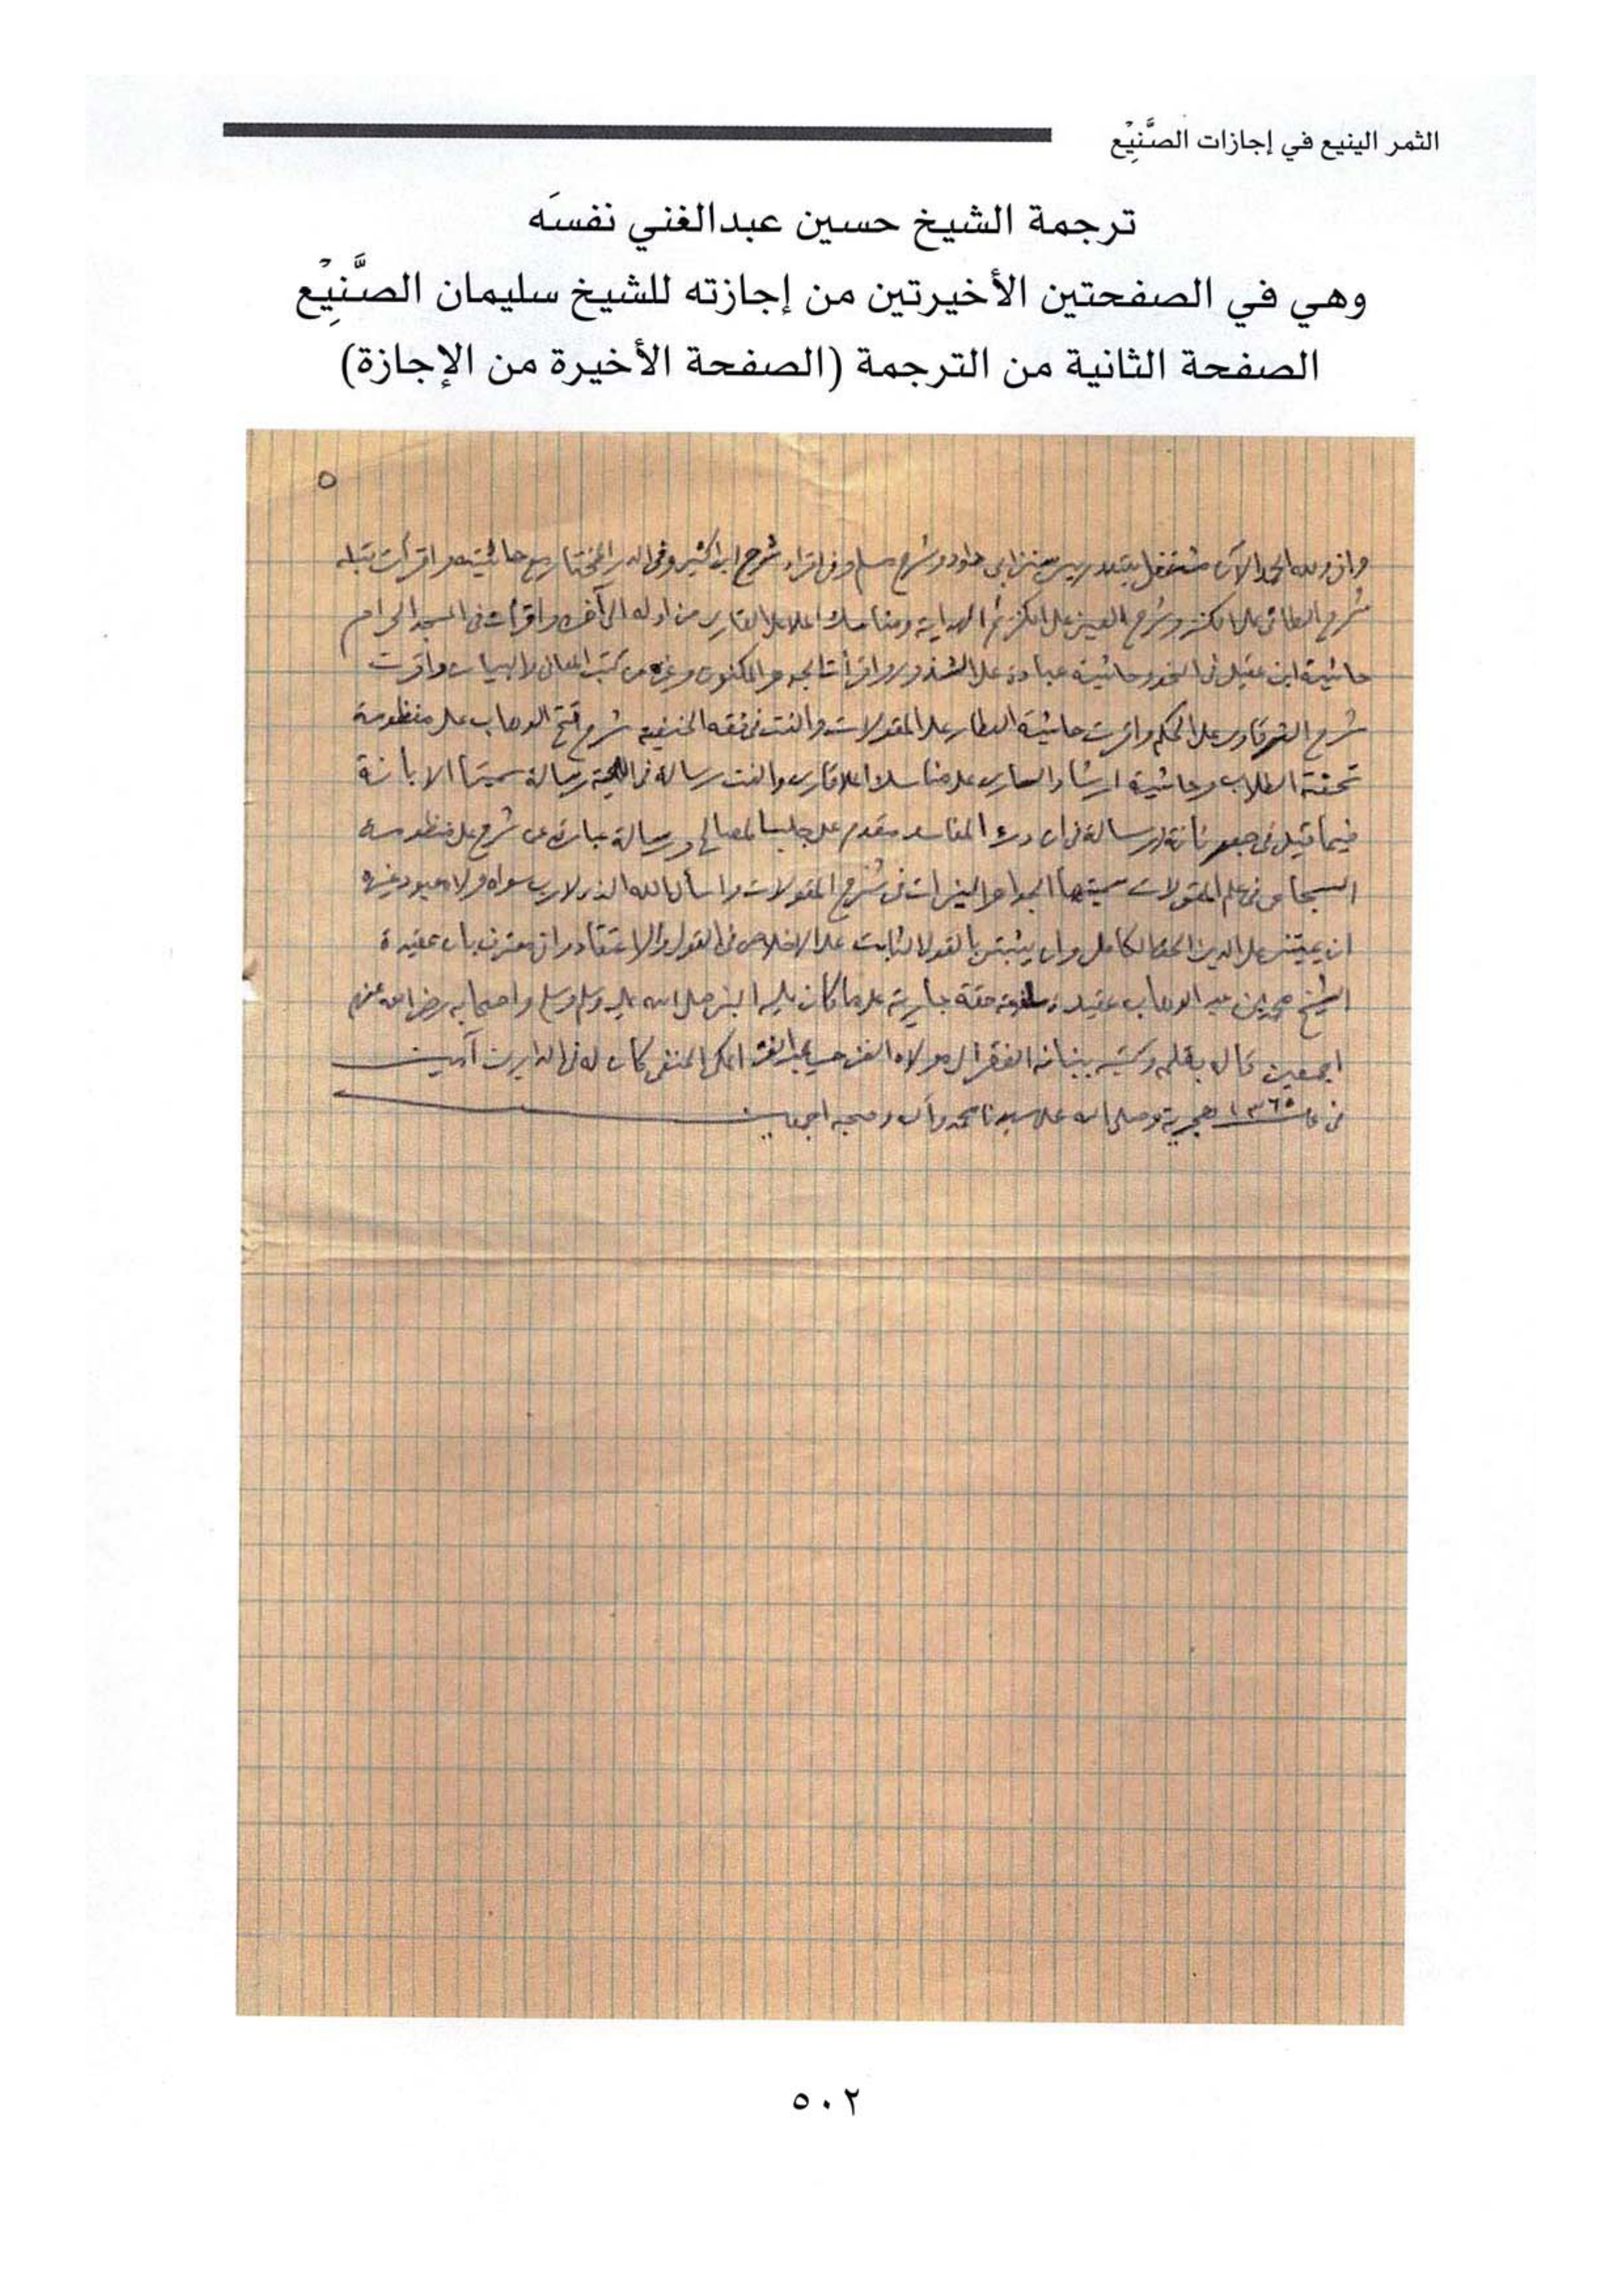 الثمر الينيع في إجازات الصَّنِيْع
ترجمة الشيخ حسين عبدالغني نفسَه
وهي في الصفحتين الأخيرتين من إجازته للشيخ سليمان الصَّنِيْع
الصفحة الثانية من الترجمة (الصفحة الأخيرة من الإجازة)
٥
واني ولله الحمد الآن مشتغل بتدريس سنن ابي داود وشرح مسلم وفي اقراء شرح ابن كثير وفي الدر المختار مع حاشيته واقرأت قبله
شرح الطائي على الكنز وشرح العيني على الكنز ثم الهداية ومناسك الملا على القاري من اوله الى آخره واقرأت في المسجد الحرام
حاشية ابن عقيل في النحو وحاشية عبادة على الشذور واقرأت الجوهر المكنون وغيره من كتب المعاني والبيان واقرت
شرح الشرقاوي على الحكم واقرت حاشية العطار على المقولات والفت في فقه الحنفية شرح فتح الوهاب على منظومة
تحفة الطلاب وحاشية ارشاد الساري على مناسك الملا قاري والفت رسالة في رسالة سميتها الابانة
فيما قيل في ورسالة في ان درء المفاسد مقدم على جلب المصالح ورسالة عبارة عن شرح على منظومة
السجاعي في علم المقولات سميتها الجواهر النيرات في شرح المقولات واسأل الله الذي لا رب سواه ولا معبود غيره
ان يميتني على الدين الحق الكامل وان يثبتني بالقول الثابت على الاخلاص في القول والاعتقاد واني معترف بان عقيدة
الشيخ محمد بن عبد الوهاب عقيدة سلفية حقة جارية على ما كان عليه النبي صلى الله عليه وسلم واصحابه رضي الله عنهم
اجمعين قاله بفمه وكتبه ببنانه الفقير الى مولاه الغني حسين عبد الغني المكي الحنفي كان له في الدارين آمين
في ١٣٦٥ هجرية وصلى الله على سيدنا محمد وآله وصحبه اجمعين
٥٠٢